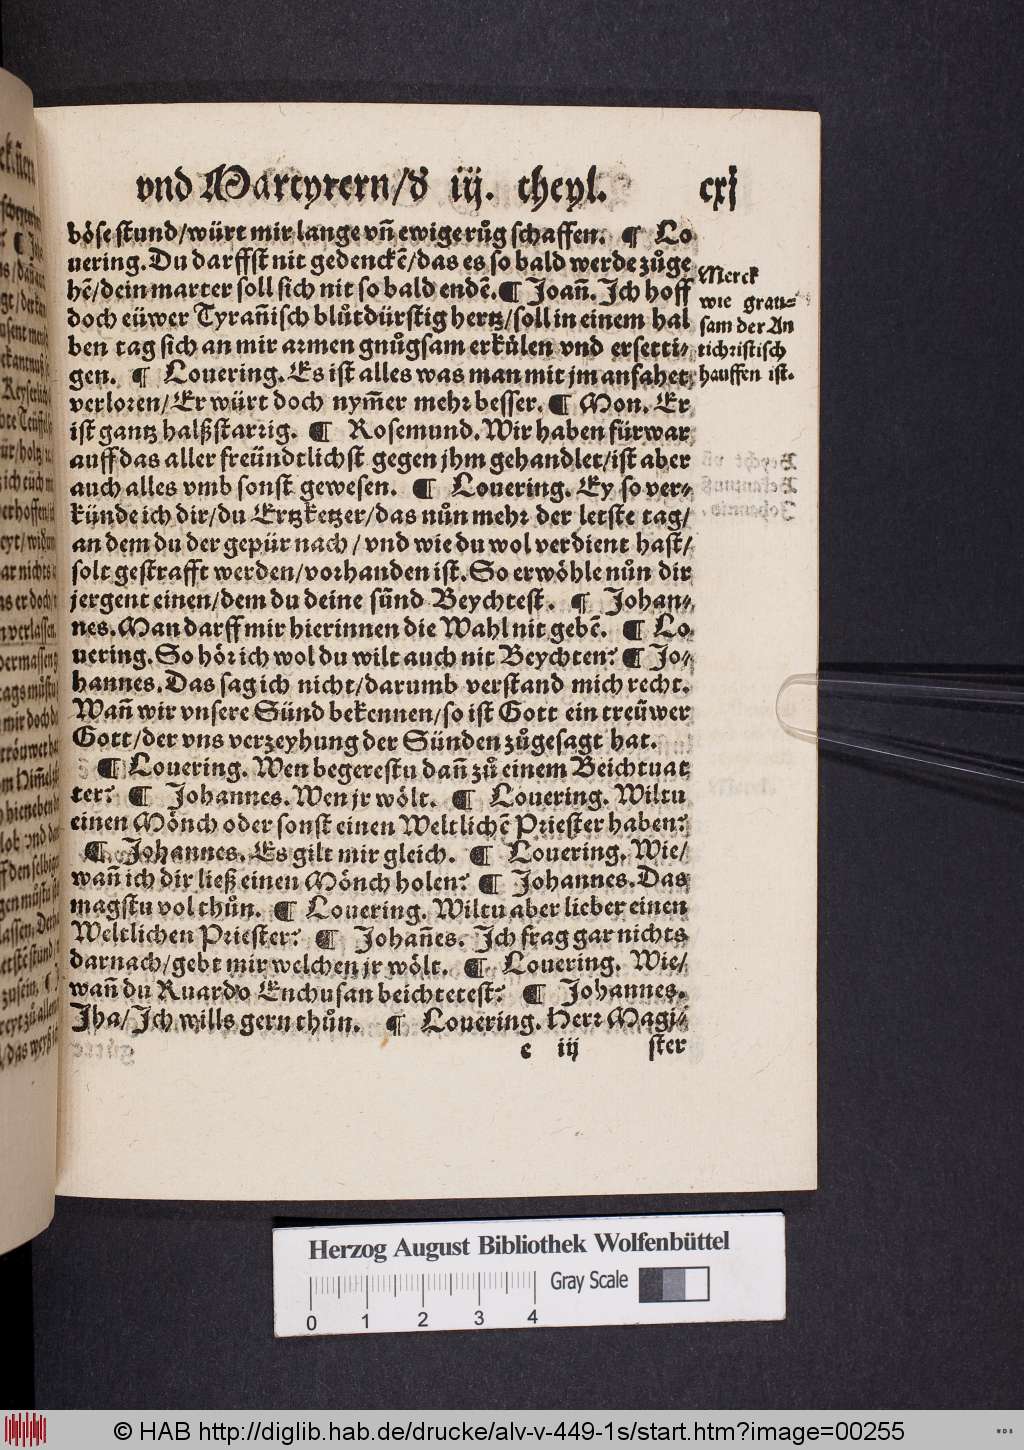 vnd Martyrern/d̕ iij. theyl. cxj
böse stund/würt mir lange vn̄ ewige růg schaffen. ¶ Lo
uering. Du darffst nit gedenckē/das es so bald werde zůge
hē/dein marter soll sich nit so bald endē. ¶ Joan̄. Jch hoff
doch eüwer Tyran̄isch blůtdürstig hertz/soll in einem hal
ben tag sich an mir armen gnůgsam erkůlen vnd ersetti⸗
gen. ¶ Louering. Es ist alles was man mit jm anfahet
verloren/Er würt doch nym̄er mehr besser. ¶ Mon. Er
ist gantz halßstarrig. ¶ Rosemund. Wir haben fürwar
auff das aller freündtlichst gegen jhm gehandlet/ist aber
auch alles vmb sonst gewesen. ¶ Louering. Ey so ver⸗
künde ich dir/du Ertzketzer/das nůn mehr der letste tag/
an dem du der gepür nach/vnd wie du wol verdient hast/
solt gestrafft werden/vorhanden ist. So erwöhle nůn dir
jergent einen/dem du deine sünd Beychtest. ¶ Johan⸗
nes. Man darff mir hierinnen die Wahl nit gebē. ¶ Lo
uering. So hör ich wol du wilt auch nit Beychten? ¶ Jo⸗
hannes. Das sag ich nicht/darumb verstand mich recht.
Wan̄ wir vnsere Sünd bekennen/so ist Gott ein treüwer
Gott/der vns verzeyhung der Sünden zůgesagt hat.
¶ Louering. Wen begerestu dan̄ zů einem Beichtuat
ter? ¶ Johannes. Wen jr wölt. ¶ Louering. Wiltu
einen Mönch oder sonst einen Weltlichē Priester haben?
¶ Johannes. Es gilt mir gleich. ¶ Louering. Wie/
wan̄ ich dir ließ einen Mönch holen? ¶ Johannes. Das
magstu vol thůn. ¶ Louering. Wiltu aber lieber einen
Weltlichen Priester? ¶ Johan̄es. Jch frag gar nichts
darnach/gebt mir welchen jr wölt. ¶ Louering. Wie/
wan̄ du Ruardo Enchusan beichtetest? ¶ Johannes.
Jha/Jch wills gern thůn. ¶ Louering. Herr Magi⸗
e iij ster
Merck
wie grau⸗
sam der An
tichristisch
hauffen ist.
Herzog August Bibliothek Wolfenbüttel
Gray Scale
0 1 2 3 4
© HAB http://diglib.hab.de/drucke/alv-v-449-1s/start.htm?image=00255